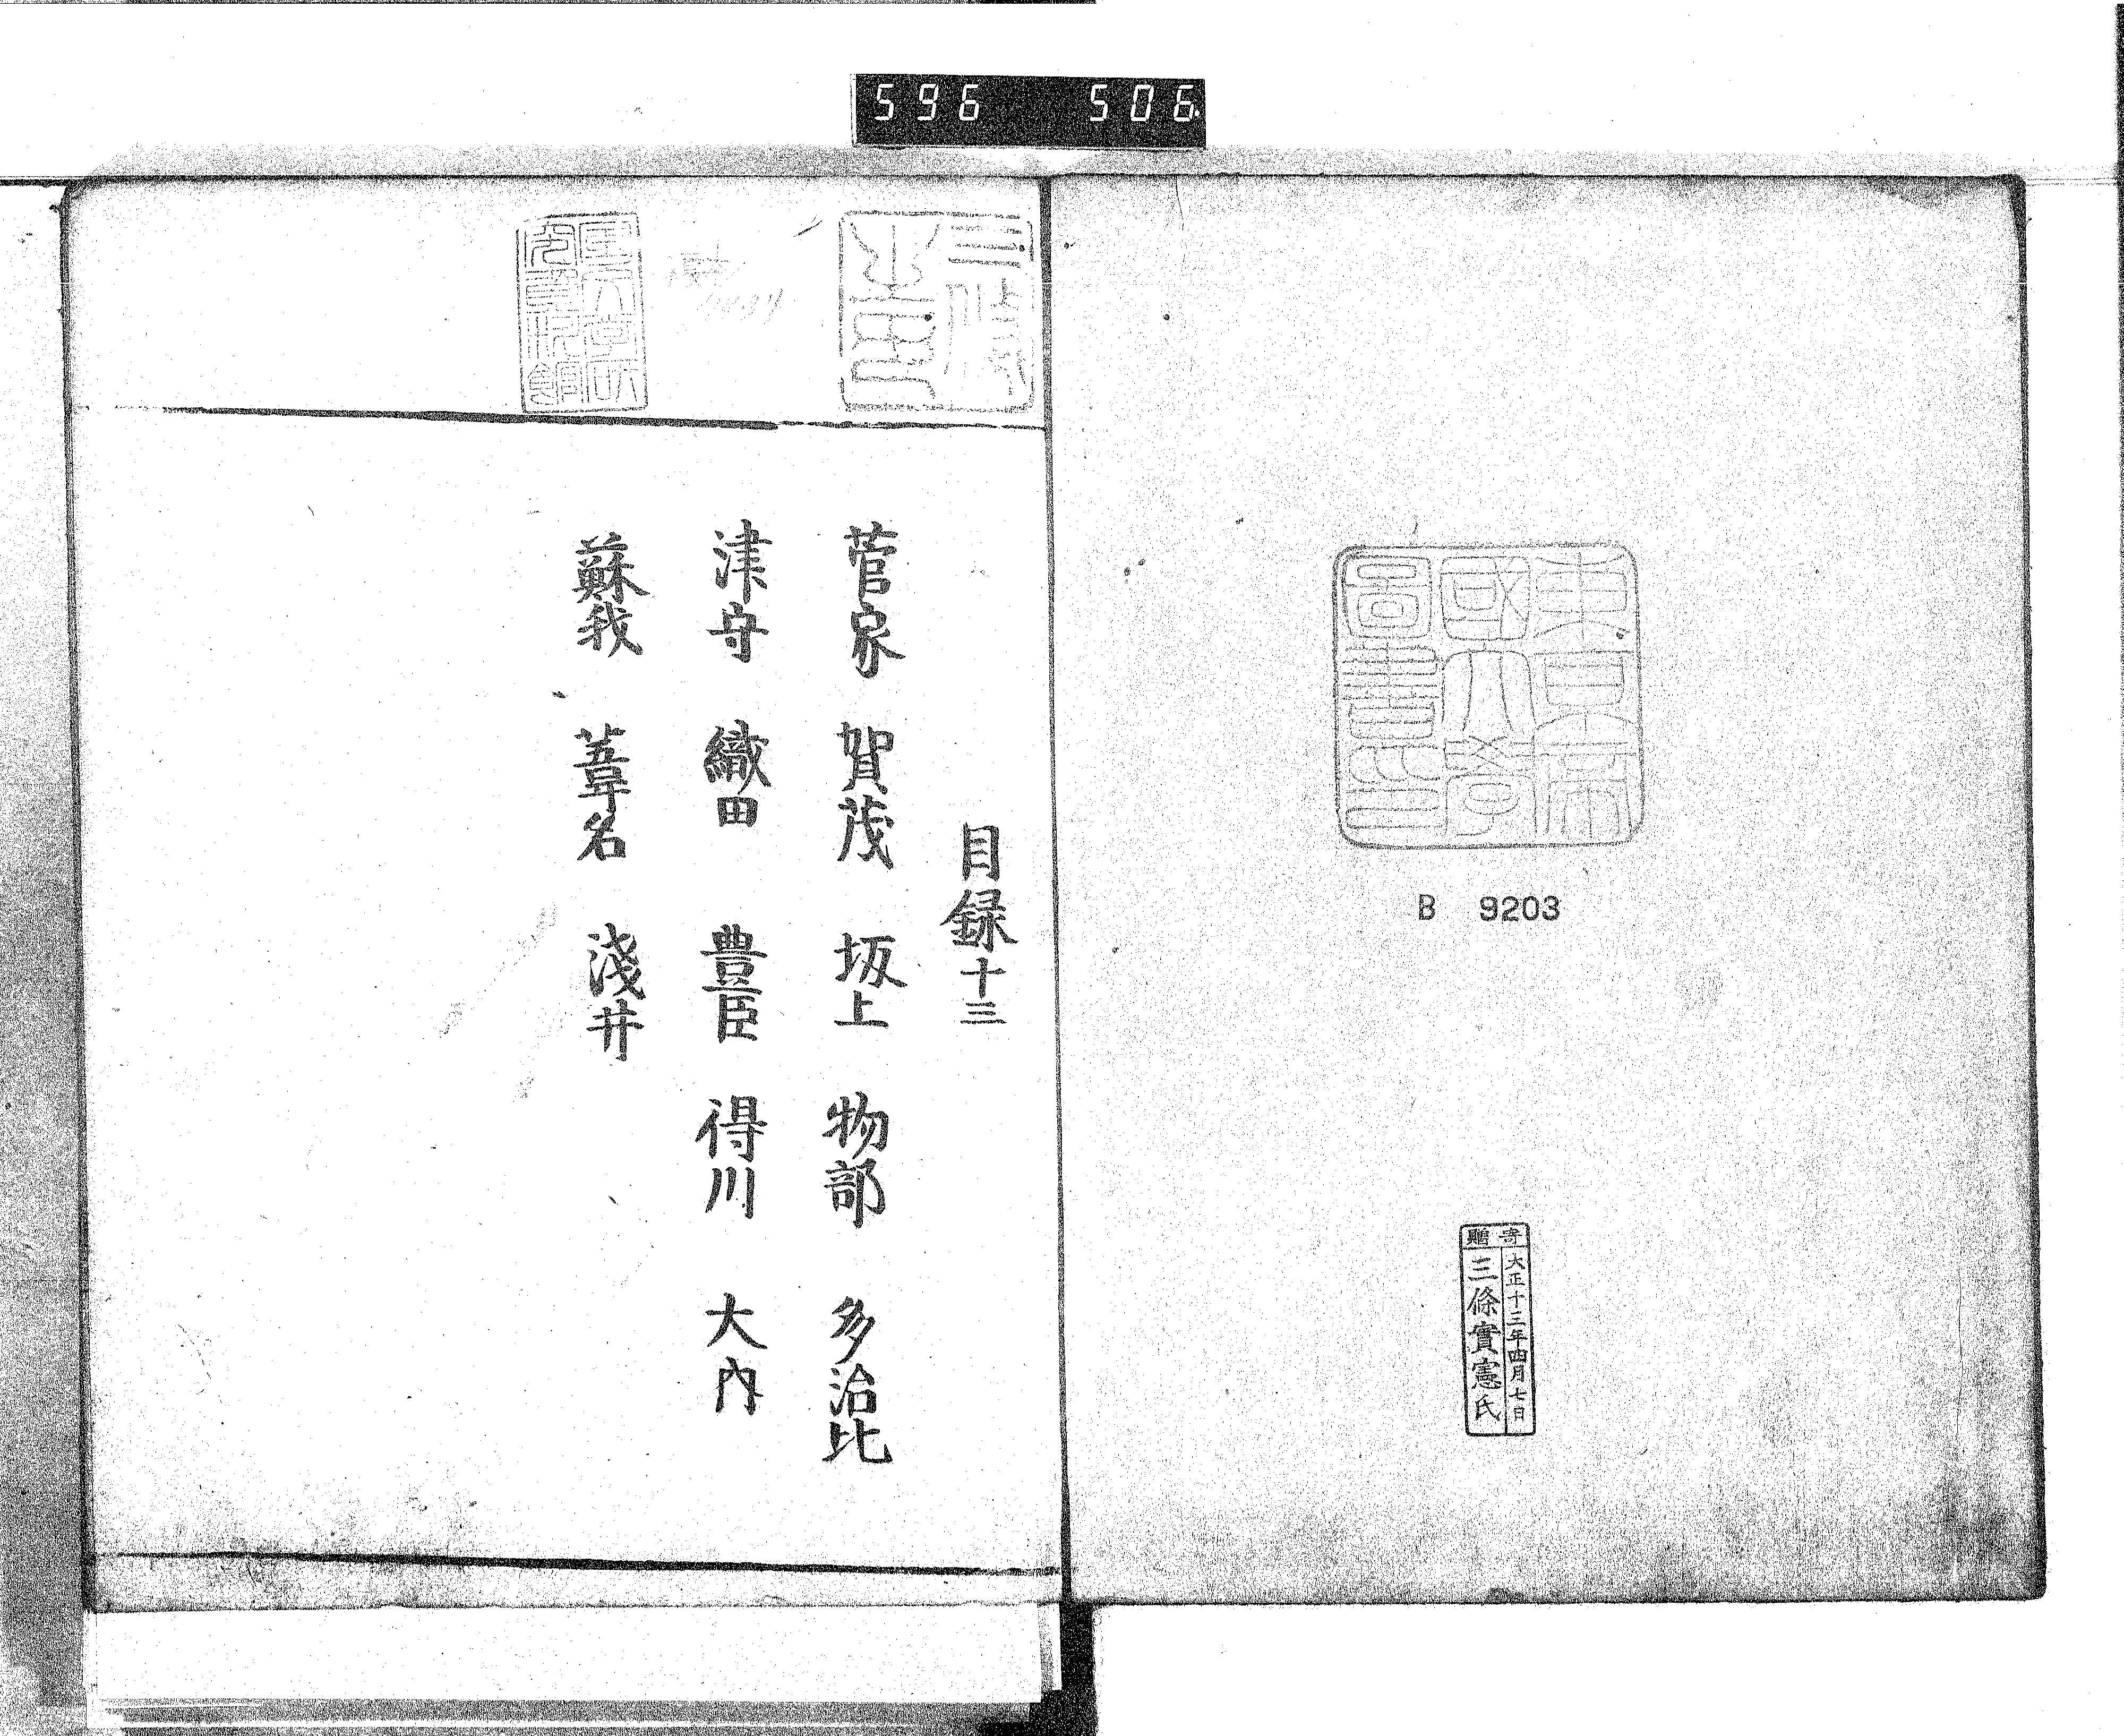 596 506
東京帝
國大學
圖書印
B 9203
寄贈
大正十三年四月七日
三條實憲氏
目録十三
菅家 賀茂 坂上 物部 多治比
津守 織田 豊臣 得川 大内
蘇我 葦名 淺井